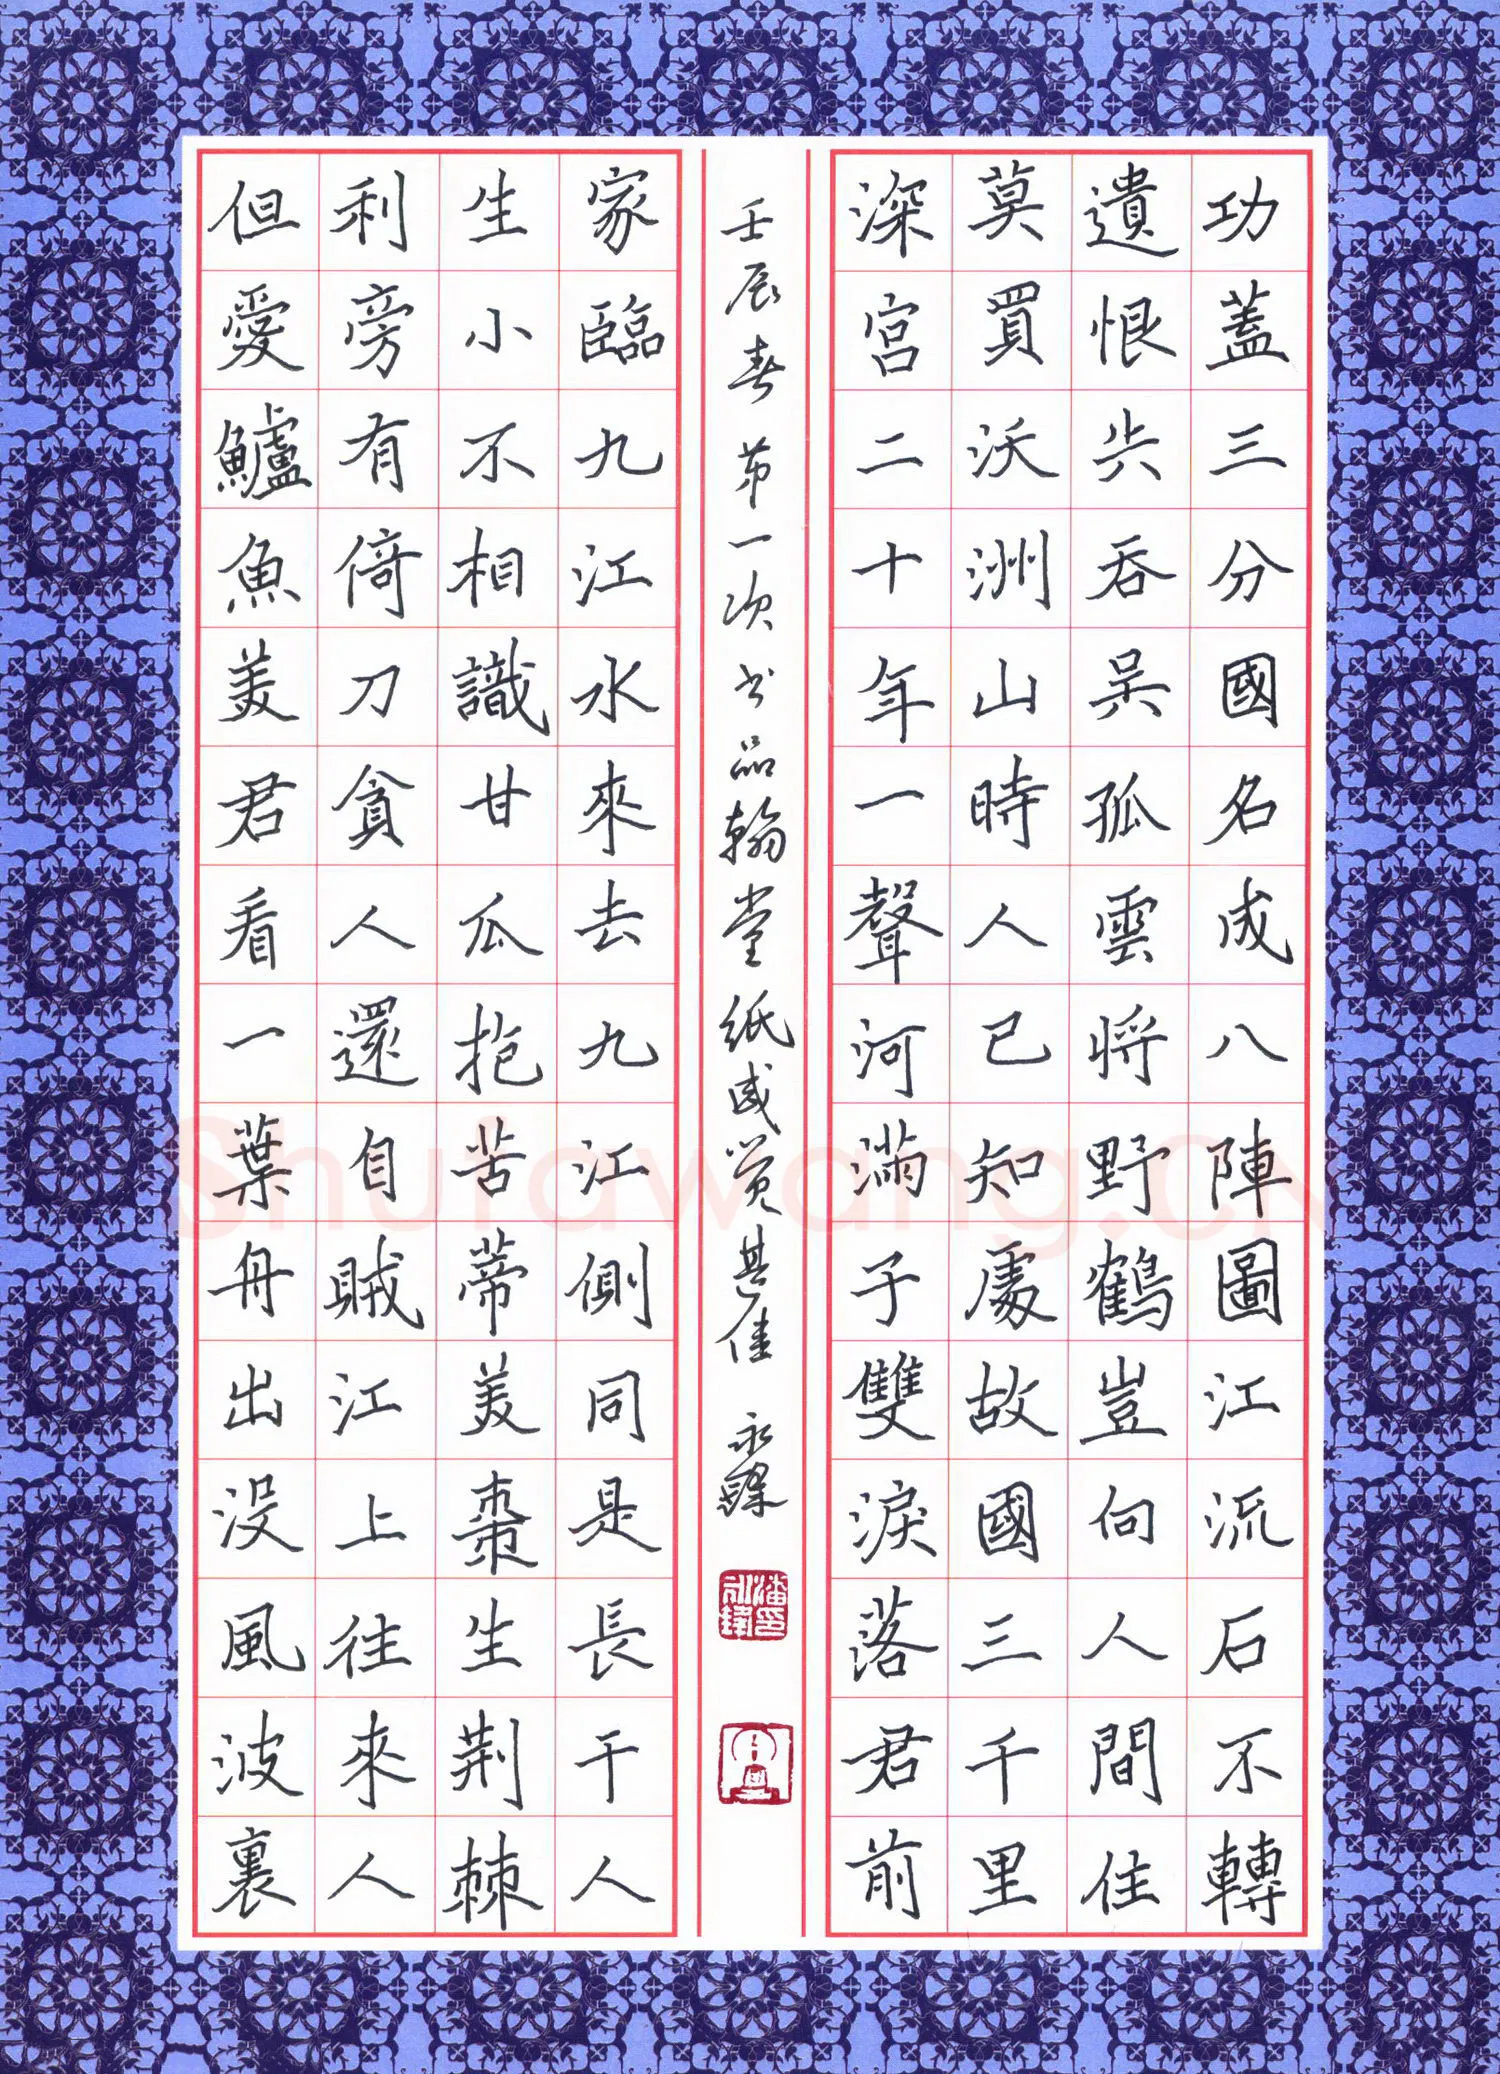 功蓋三分國名成八陣圖江流石不轉
遺恨失吞吳孤雲將野鶴豈向人間住
莫買沃洲山時人已知處故國三千里
深宮二十年一聲河滿子雙淚落君前
壬辰春第一次书品翰堂纸感觉甚佳 永
家臨九江水來去九江側同是長干人
生小不相識甘瓜抱苦蒂美棗生荊棘
利旁有倚刀貪人還自賊江上往來人
但愛鱸魚美君看一葉舟出沒風波裏
Shufawang.CN